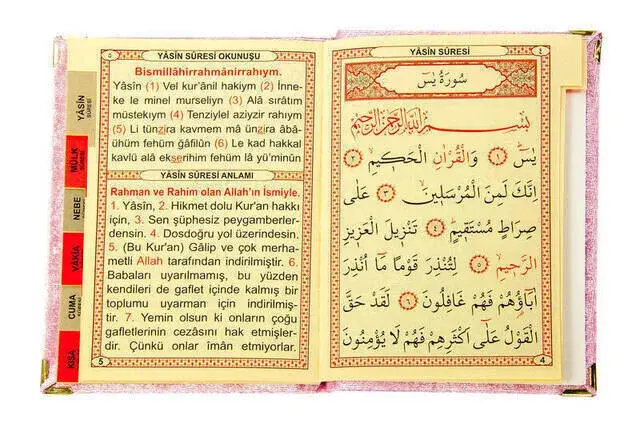 ٥
YÂSİN SÛRESİ OKUNUŞU
Bismillâhirrahmânirrahıym.
Yâsîn (1) Vel kur'ânil hakiym (2) İnne-
ke le minel murseliyn (3) Alâ sırâtım
müstekıym (4) Tenziylel aziyzir rahıym
(5) Li tünzira kavmem mâ ünzira âbâ-
ühüm fehüm ğâfilûn (6) Le kad hakkal
kavlü alâ ekserihim fehüm lâ yü'minûn
YÂSÎN SÛRESİ ANLAMI
Rahman ve Rahim olan Allah'ın İsmiyle.
1. Yâsîn, 2. Hikmet dolu Kur'an hakkı
için, 3. Sen şüphesiz peygamberler-
densin. 4. Dosdoğru yol üzerindesin.
5. (Bu Kur'an) Gâlip ve çok merha-
metli Allah tarafından indirilmiştir. 6.
Babaları uyarılmamış, bu yüzden
kendileri de gaflet içinde kalmış bir
toplumu uyarman için indirilmiş-
tir. 7. Yemin olsun ki onların çoğu
gafletlerinin cezasını hak etmişler-
dir. Çünkü onlar îmân etmiyorlar.
5
YÂSİN
SÛRESİ
MÜLK
NEBE
VAKIA
CUMA
KISA
YÂSİN SÛRESİ
٤
سُورَةُ يٰسٓ
بِسْمِ اللّٰهِ الرَّحْمٰنِ الرَّحِيمِ
يٰسٓ ﴿١﴾ وَالْقُرْاٰنِ الْحَكِيمِ ﴿٢﴾
اِنَّكَ لَمِنَ الْمُرْسَلِينَ ﴿٣﴾ عَلٰى
صِرَاطٍ مُسْتَقِيمٍ ﴿٤﴾ تَنْزِيلَ الْعَزِيزِ
الرَّحِيمِ ﴿٥﴾ لِتُنْذِرَ قَوْمًا مَٓا اُنْذِرَ
اٰبَٓاؤُهُمْ فَهُمْ غَافِلُونَ ﴿٦﴾ لَقَدْ حَقَّ
الْقَوْلُ عَلٰٓى اَكْثَرِهِمْ فَهُمْ لَا يُؤْمِنُونَ
4